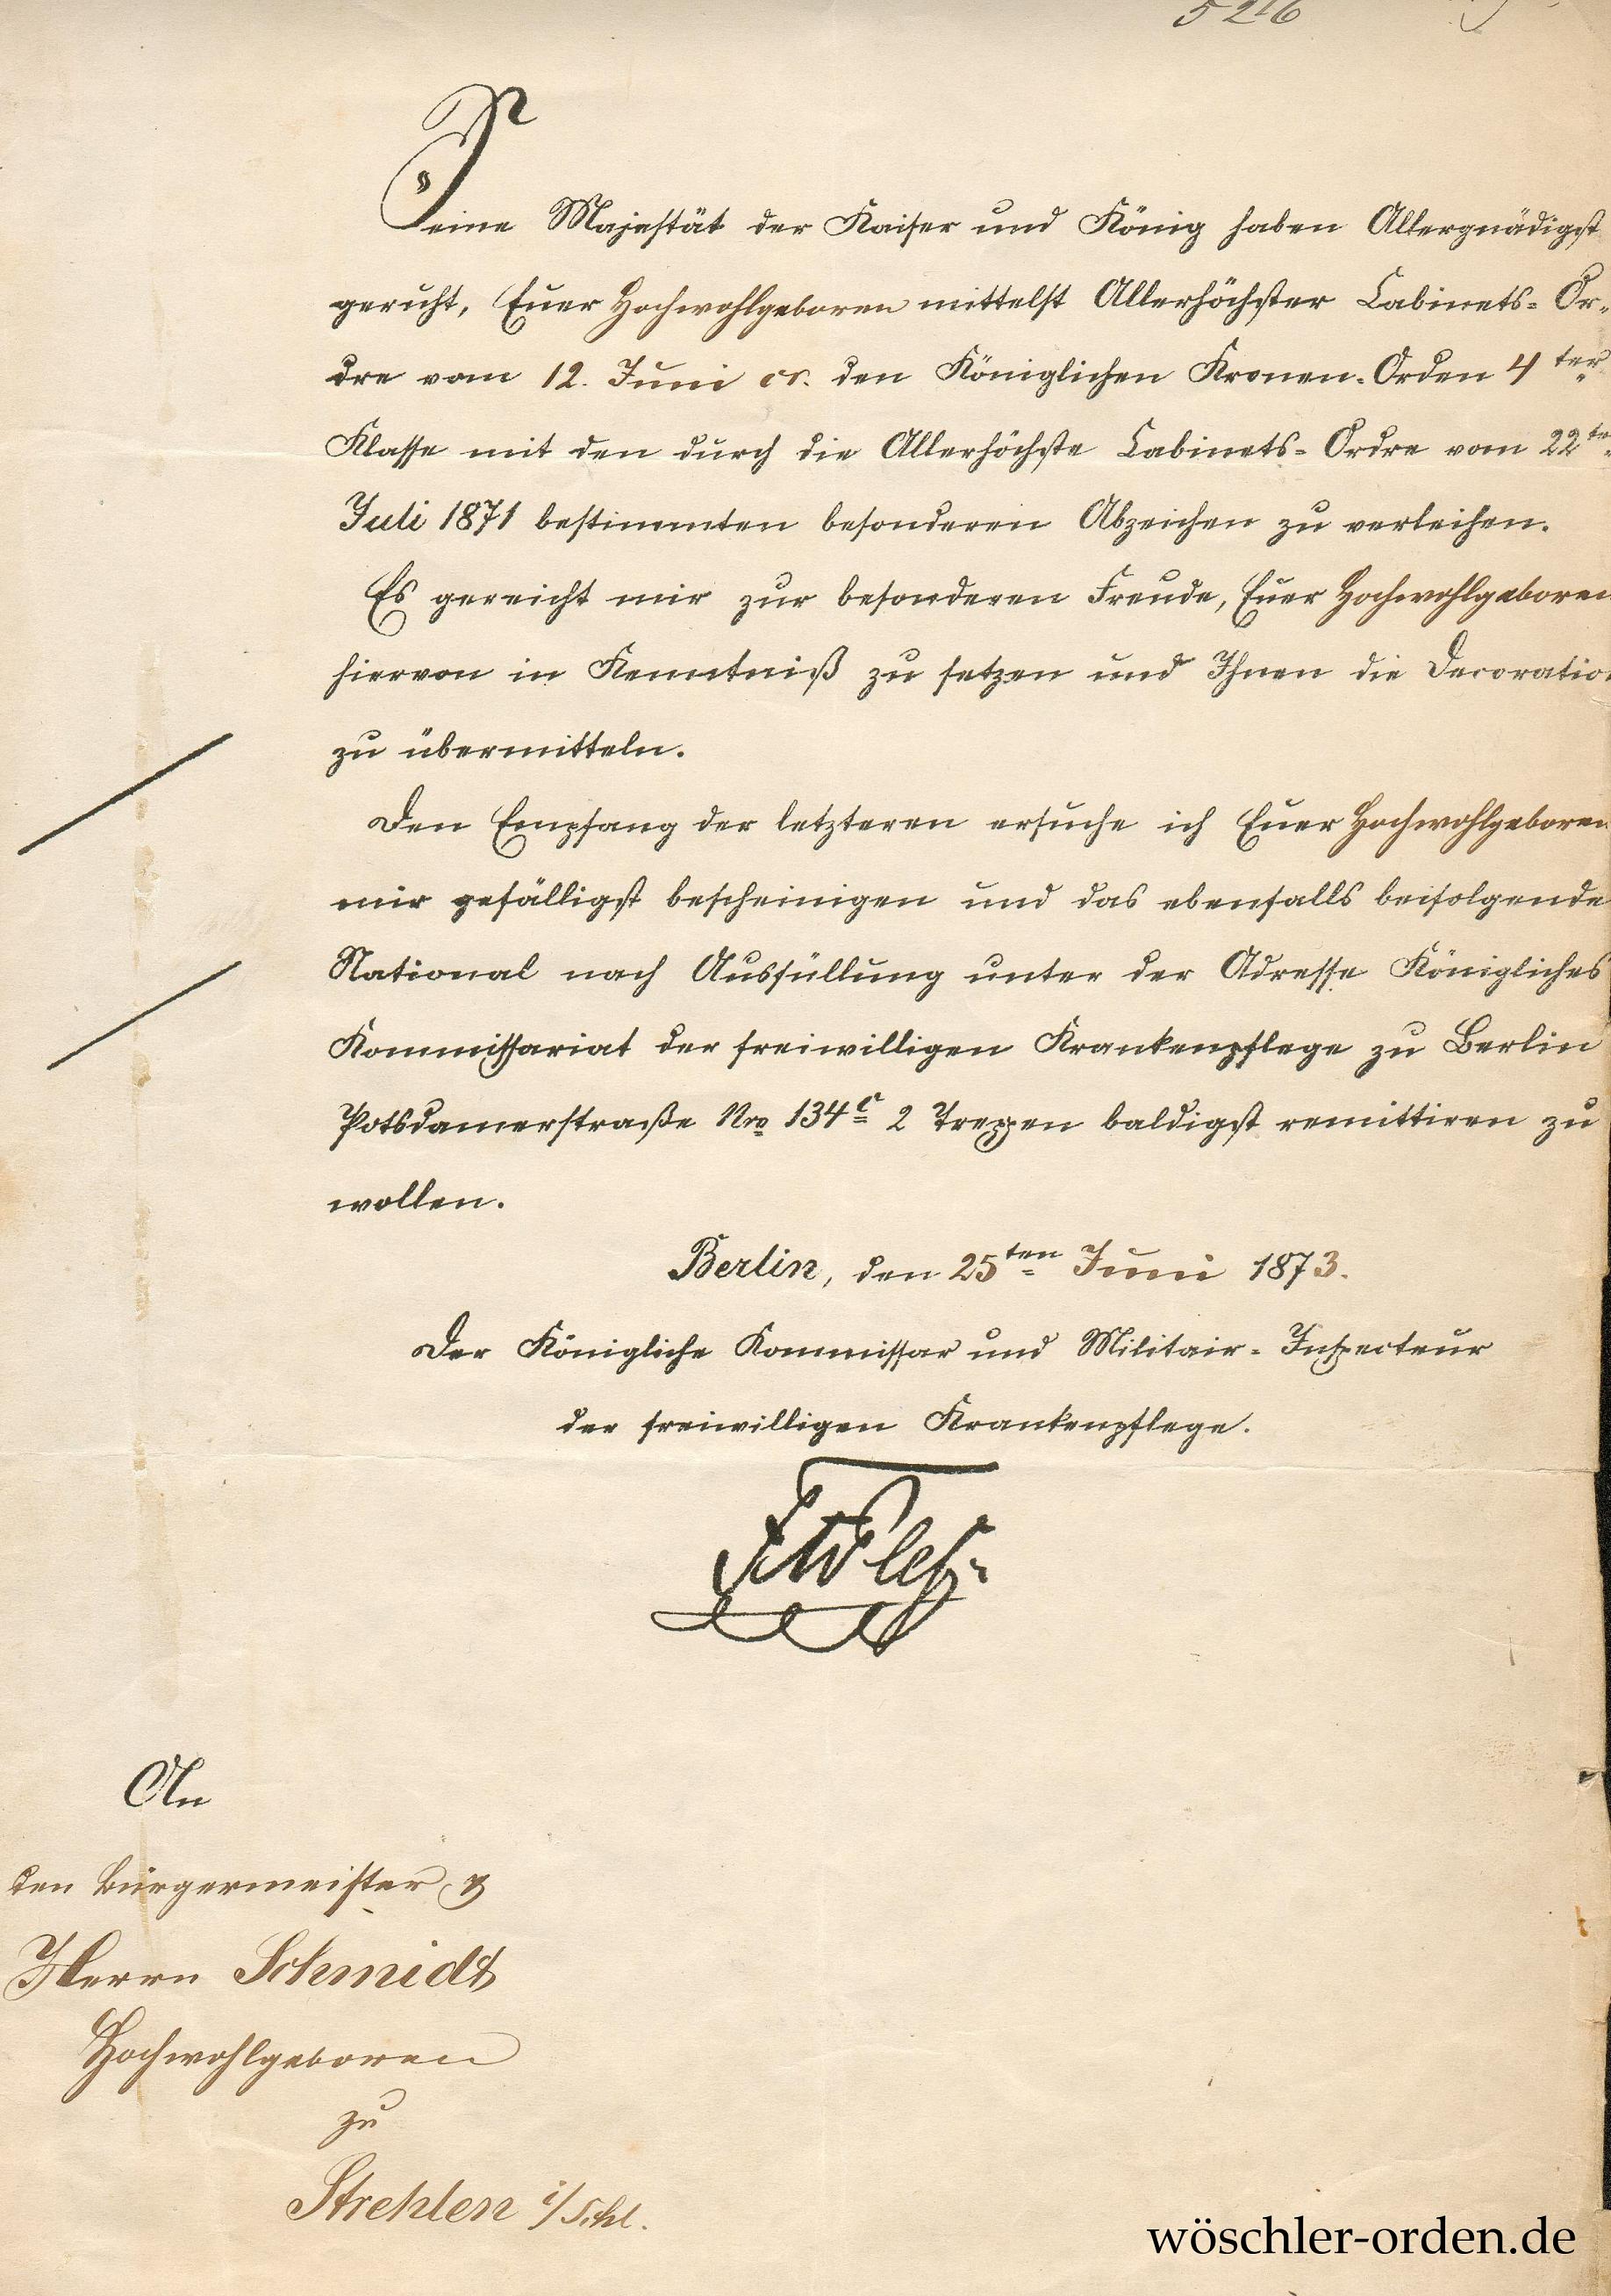 5216
Seine Majestät der Kaiser und König haben Allergnädigst
geruht, Euer Hochwohlgeboren mittelst Allerhöchster Cabinets- Or-
dre vom 12. Juni cr. den Königlichen Kronen-Orden 4ter
Klasse mit den durch die Allerhöchste Cabinets- Ordre vom 22te
Juli 1871 bestimmten besonderen Abzeichen zu verleihen.
Es gereicht mir zur besonderen Freude, Euer Hochwohlgeboren
hiervon in Kenntniß zu setzen und Ihnen die Decoration
zu übermitteln.
Den Empfang der letzteren ersuche ich Euer Hochwohlgeboren
mir gefälligst bescheinigen und das ebenfalls beifolgende
National nach Ausfüllung unter der Adresse Königliches
Kommissariat der freiwilligen Krankenpflege zu Berlin
Potsdamerstraße Nro 134c 2 Treppen baldigst remittiren zu
wollen.
Berlin, den 25ten Juni 1873.
Der Königliche Kommissar und Militair- Inspecteur
der freiwilligen Krankenpflege.
An
den Bürgermeister
Herrn Schmidt
Hochwohlgeboren
zu
Strehlen i/Schl.
wöschler-orden.de